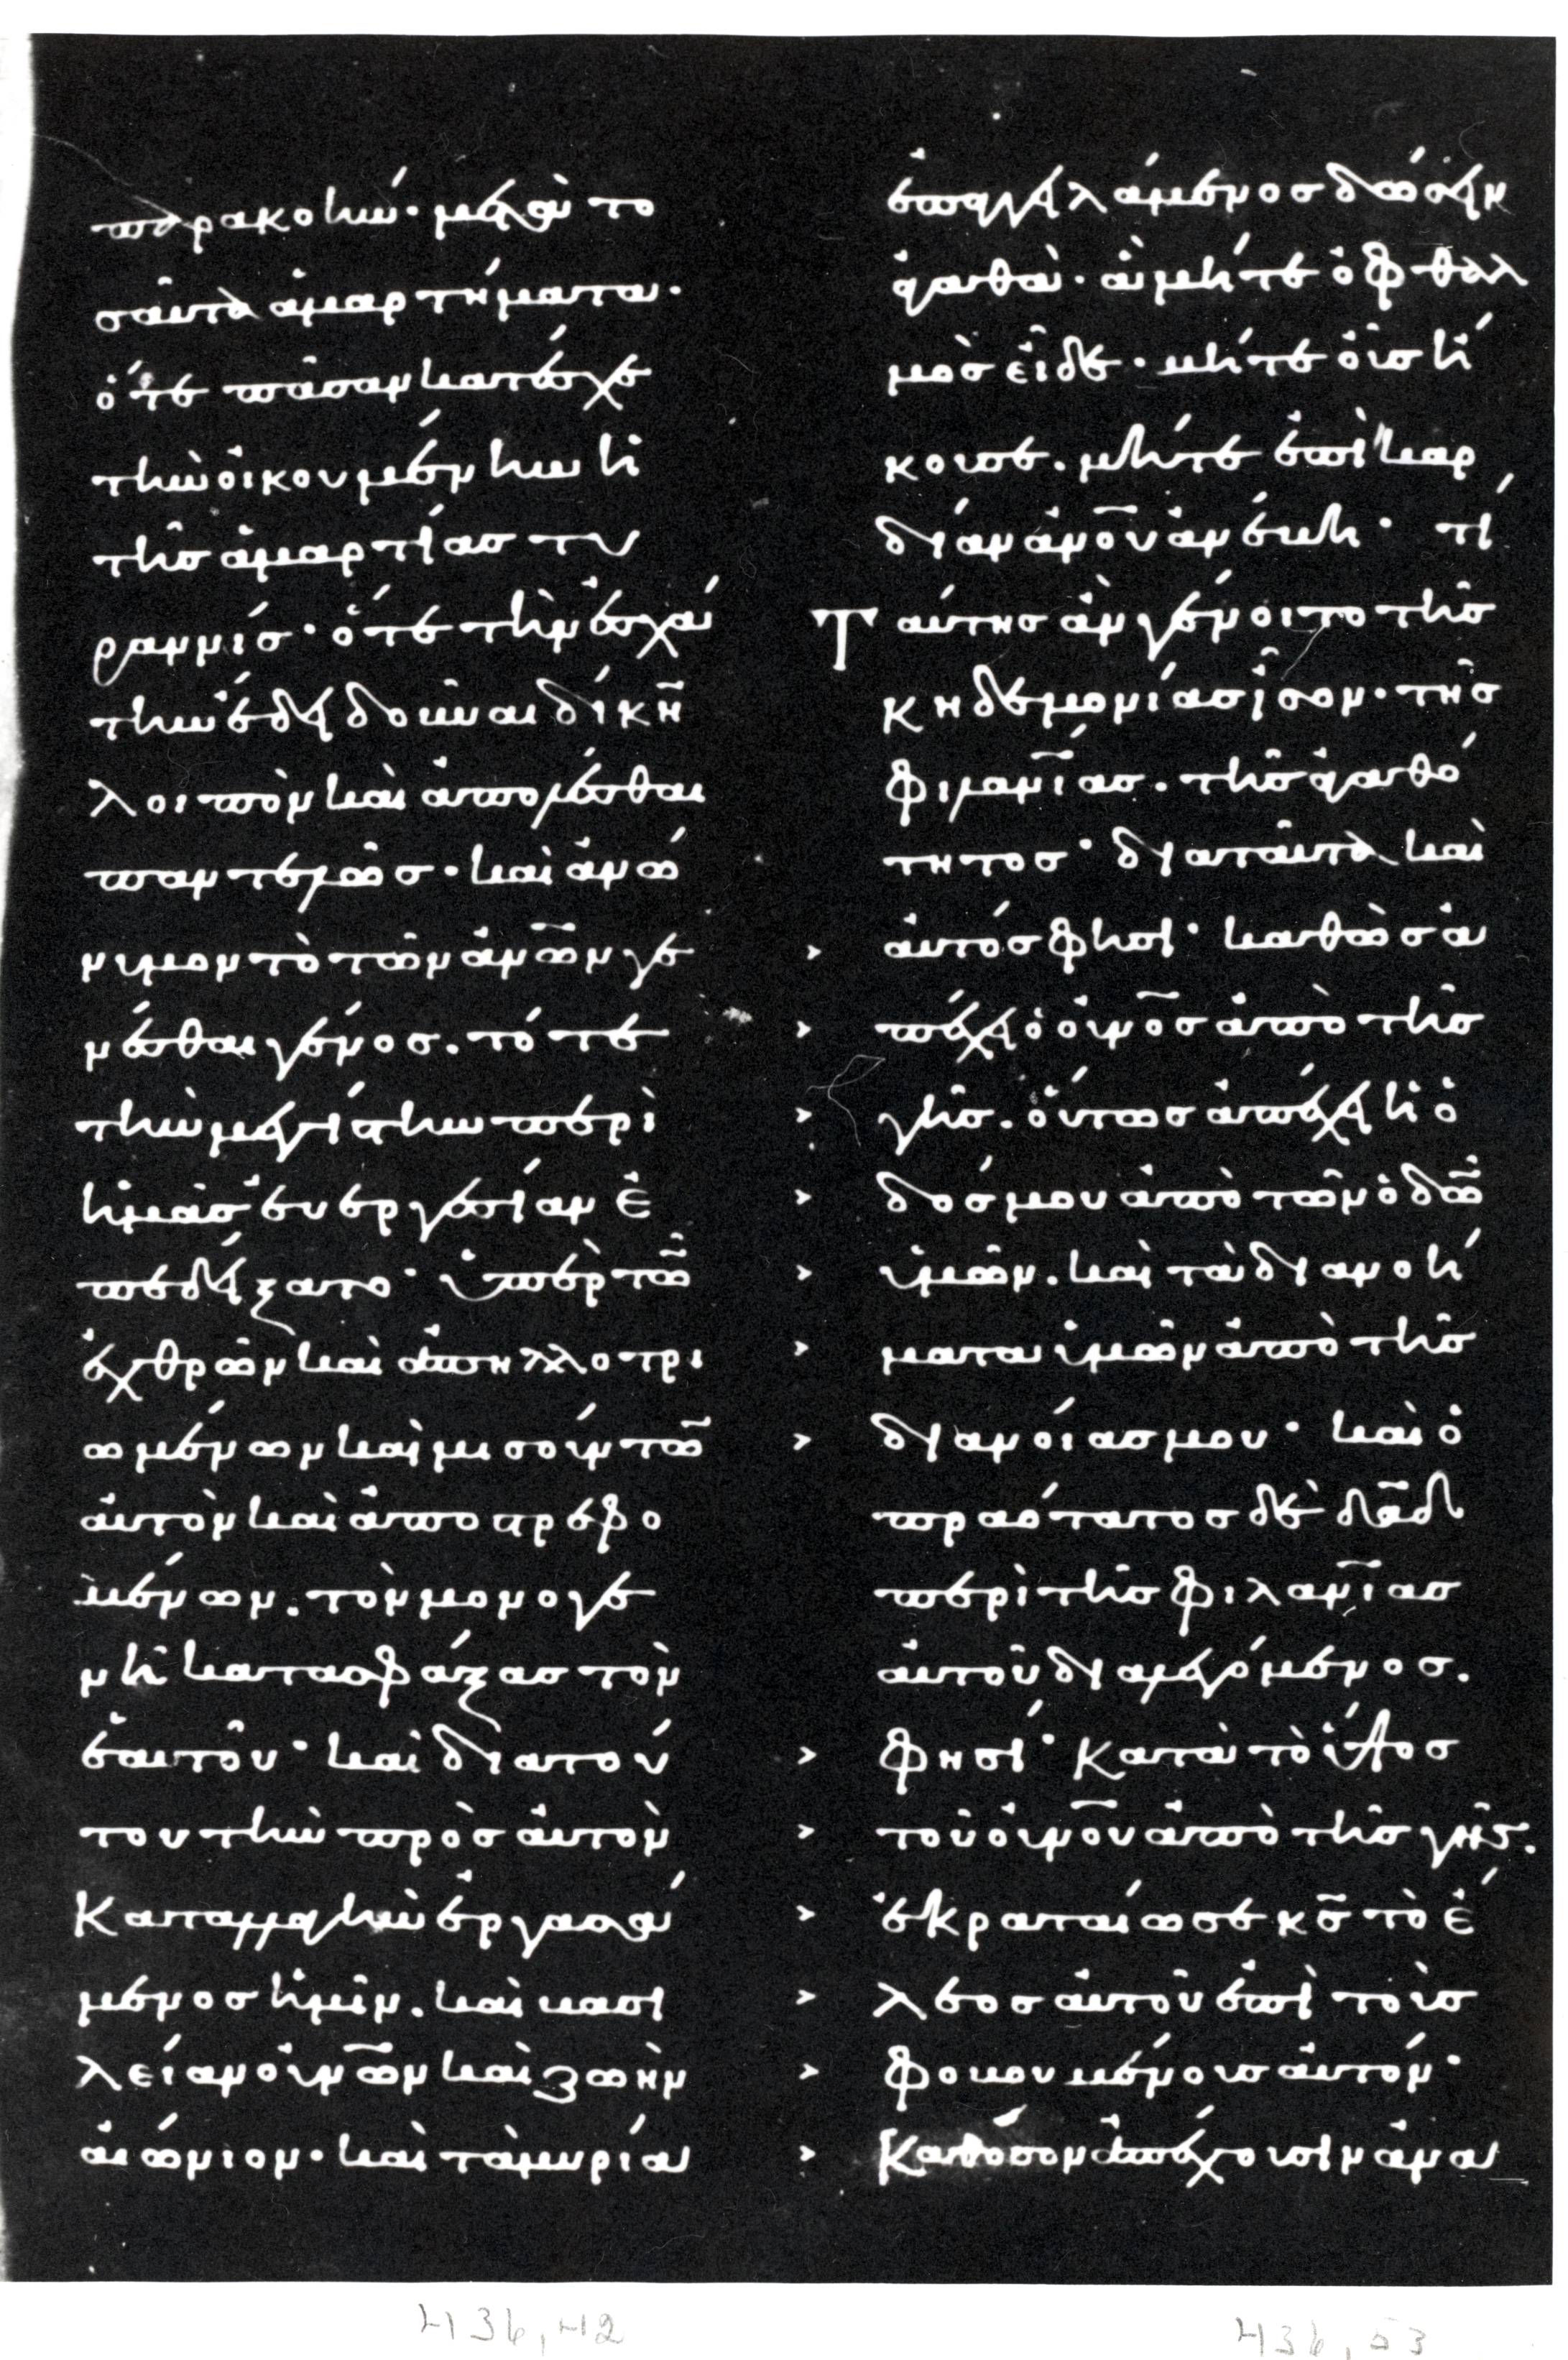 παρακοὴν· μετὰ το
σαῦτα ἁμαρτήματα·
ὅτε πᾶσαν κατέσχε
τὴν οἰκουμένην ἡ
τῆς ἁμαρτίας τυ
ραννίς· ὅτε τὴν ἐσχά
την ἔδει δοῦναι δίκη̅
λοιπὸν καὶ ἀπολέσθαι
παντελῶς· καὶ ἀνώ
νυμον τὸ τῶν ἀν̅ω̅ν γε
νέσθαι γένος. τότε
τὴν μεγίστην περὶ
ἡμᾶς εὐεργεσίαν ἐ
πεδείξατο· ὑπὲρ τῶ̅
ἐχθρῶν καὶ ἀπηλλοτρι
ωμένων καὶ μισούντω̅
αὐτὸν καὶ ἀποστρεφο
μένων. τὸν μονογε
νῆ κατασφάξας τὸν
ἑαυτοῦ· καὶ διὰ τού
του τὴν πρὸς αὐτὸν
καταλλαγὴν ἐργασά
μενος ἡμῖν. καὶ βασι
λείαν οὐν̅ω̅ν καὶ ζωὴν
αἰώνιον· καὶ τὰ μυρία
ἐπαγγειλάμενος δώσειν
ἀγαθὰ· ἃ μήτε ὀφθαλ
μὸς εἶδε· μήτε οὖς ἤ
κουσε. μήτε ἐπὶ καρ
δίαν ἀν̅ο̅υ ἀνέβη· τί
Ταύτης ἂν γένοιτο τῆς
κηδεμονίας ἴσον· τῆς
φιλαν̅ί̅ας. τῆς ἀγαθό
τητος· διὰ ταῦτα καὶ
αὐτός φησι· καθὼς ἀ
πέχει ὁ οὐν̅ο̅ς ἀπὸ τῆς
γῆς. οὕτως ἀπέχει ἡ ὁ
δός μου ἀπὸ τῶν ὁδῶ̅
ὑμῶν. καὶ τὰ διανοή
ματα ὑμῶν ἀπὸ τῆς
διανοίας μου· καὶ ὁ
πραότατος δὲ δα̅δ
περὶ τῆς φιλαν̅ί̅ας
αὐτοῦ διαλεγόμενος.
φησί· κατὰ τὸ ὕψος
τοῦ οὐν̅ο̅υ ἀπὸ τῆς γῆς.
ἐκραταίωσε κ̅ς̅ τὸ ἔ
λεος αὐτοῦ ἐπὶ τοὺς
φοβουμένους αὐτόν·
καθόσον ἀπέχουσιν ἀνα
436,42
436,53